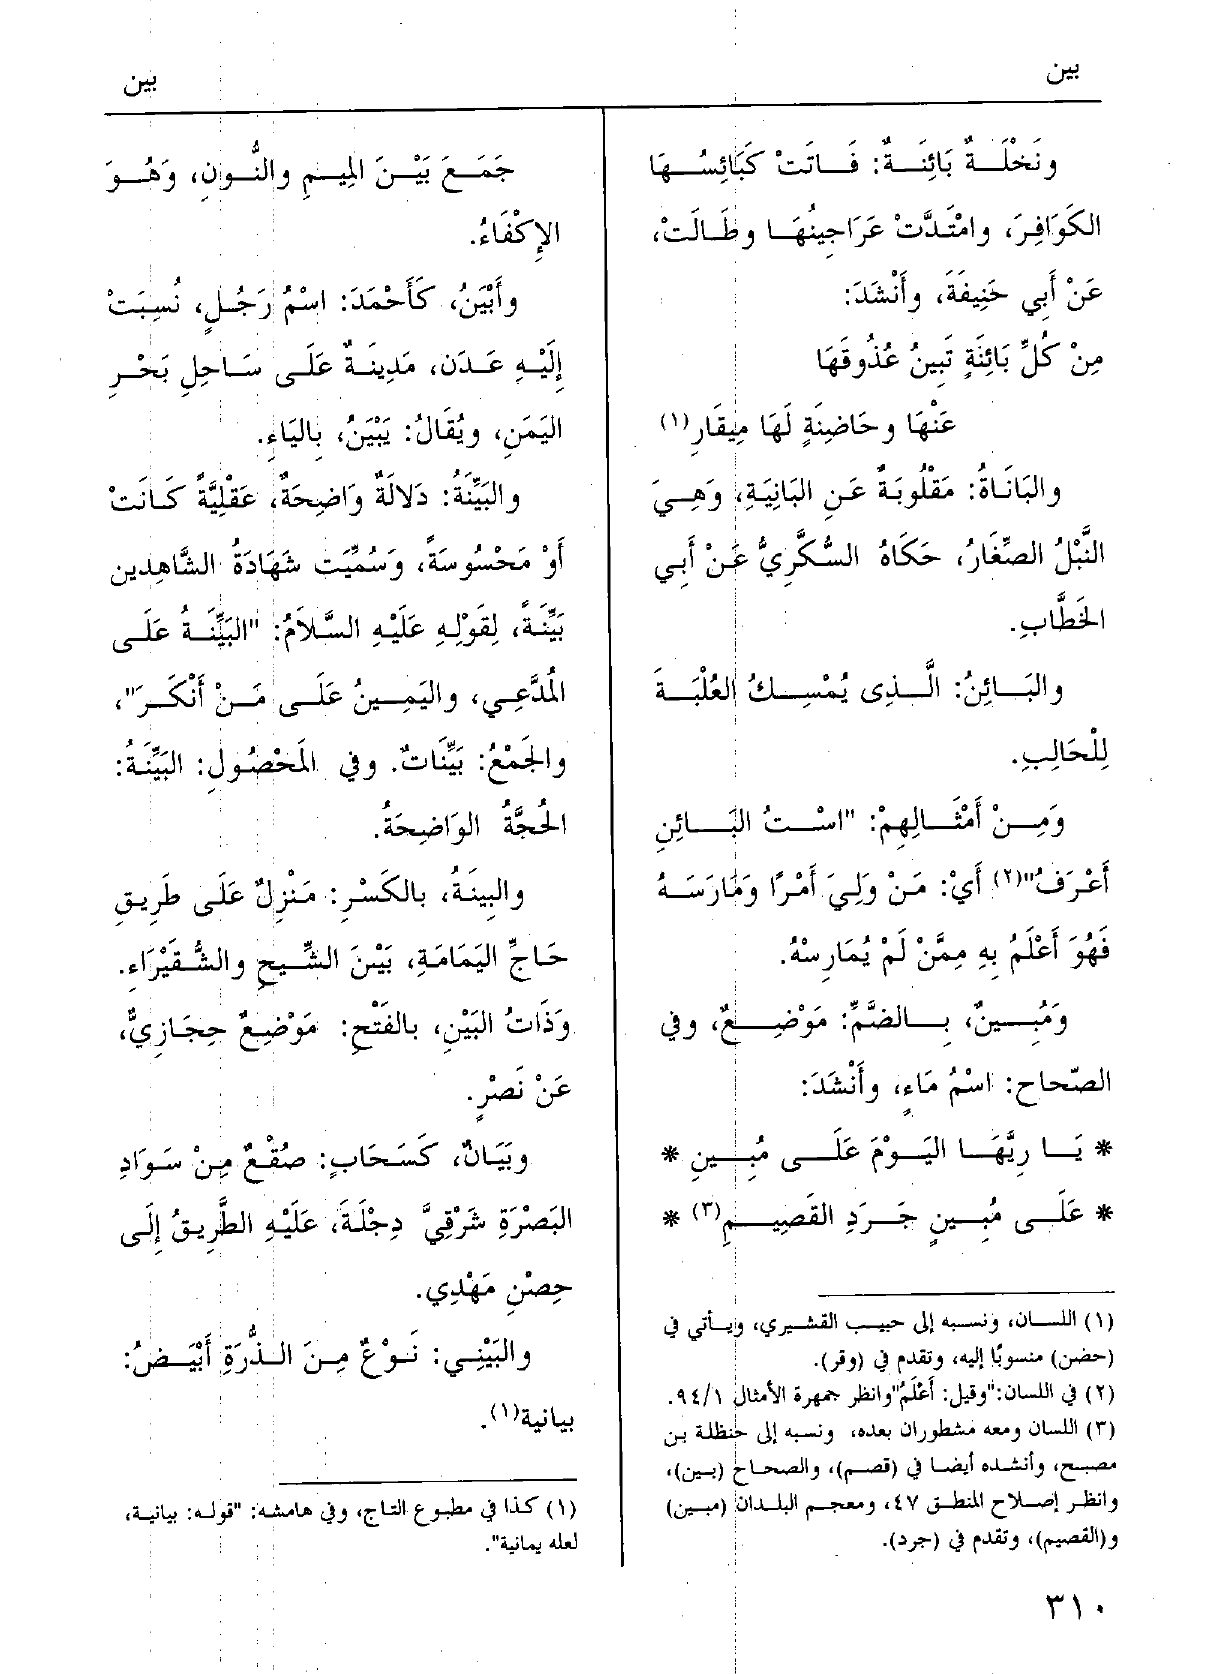 بين
بين
ونَخْلَةٌ بَائِنَةٌ: فَاتَتْ كَبَائِسُهَا
الكَوَافِرَ، وامْتَدَّتْ عَرَاجِينُهَا وطَالَتْ،
عَنْ أَبِي حَنِيفَةَ، وأَنْشَدَ:
مِنْ كُلِّ بَائِنَةٍ تَبِينُ عُذُوقَهَا
عَنْهَا وحَاضِنَةٍ لَهَا مِيقَارِ(١)
والبَانَاةُ: مَقْلُوبَةٌ عَنِ البَانِيَةِ، وَهِيَ
النَّبْلُ الصِّغَارُ، حَكَاهُ السُّكَّرِيُّ عَنْ أَبِي
الخَطَّابِ.
والبَائِنُ: الَّذِى يُمْسِكُ العُلْبَةَ
لِلْحَالِبِ.
وَمِنْ أَمْثَالِهِمْ: "اسْتُ البَائِنِ
أَعْرَفُ"(٢) أَيْ: مَنْ وَلِيَ أَمْرًا وَمَارَسَهُ
فَهُوَ أَعْلَمُ بِهِ مِمَّنْ لَمْ يُمَارِسْهُ.
وَمُبِينٌ، بِالضَّمِّ: مَوْضِعٌ، وفي
الصّحاح: اسْمُ مَاءٍ، وأَنْشَدَ:
* يَا رِيَّهَا اليَوْمَ عَلَى مُبِينِ *
* عَلَى مُبِينٍ جَرَدِ القَصِيمِ(٣) *
(١) اللسان، ونسبه إلى حبيب القشيري، ويأتي في
(حضن) منسوبًا إليه، وتقدم في (وقر).
(٢) في اللسان:"وقيل: أَعْلَمُ"وانظر جمهرة الأمثال ٩٤/١.
(٣) اللسان ومعه مشطوران بعده، ونسبه إلى حنظلة بن
مصبح، وأنشده أيضا في (قصم)، والصحاح (بين)،
وانظر إصلاح المنطق ٤٧، ومعجم البلدان (مبين)
و(القصيم)، وتقدم في (جرد).
جَمَعَ بَيْنَ المِيمِ والنُّونِ، وَهُوَ
الإِكْفَاءُ.
وأَبْيَنُ، كَأَحْمَدَ: اسْمُ رَجُلٍ، نُسِبَتْ
إِلَيْهِ عَدَن، مَدِينَةٌ عَلَى سَاحِلِ بَحْرِ
اليَمَنِ، ويُقَالُ: يَبْيَنُ، بِاليَاءِ.
والبَيِّنَةُ: دَلالَةٌ وَاضِحَةٌ، عَقْلِيَّةً كَانَتْ
أَوْ مَحْسُوسَةً، وَسُمِّيَت شَهَادَةُ الشَّاهِدين
بَيِّنَةً، لِقَوْلِهِ عَلَيْهِ السَّلاَمُ: "البَيِّنَةُ عَلَى
المُدَّعِي، واليَمِينُ عَلَى مَنْ أَنْكَرَ"،
والجَمْعُ: بَيِّنَاتٌ. وفي المَحْصُولِ: البَيِّنَةُ:
الحُجَّةُ الوَاضِحَةُ.
والبِينَةُ، بالكَسْرِ: مَنْزِلٌ عَلَى طَرِيقِ
حَاجِّ اليَمَامَةِ، بَيْنَ الشِّيحِ والشُّقَيْرَاءِ.
وَذَاتُ البَيْنِ، بالفَتْحِ: مَوْضِعٌ حِجَازِيٌّ،
عَنْ نَصْرٍ.
وبَيَانٌ، كَسَحَابٍ: صُقْعٌ مِنْ سَوَادِ
البَصْرَةِ شَرْقِيَّ دِجْلَةَ، عَلَيْهِ الطَّرِيقُ إِلَى
حِصْنِ مَهْدِي.
والبَيْنِي: نَوْعٌ مِنَ الذُّرَةِ أَبْيَضُ:
بيانية(١).
(١) كذا في مطبوع التاج، وفي هامشه: "قوله: بيانية،
لعله يمانية".
٣١٠